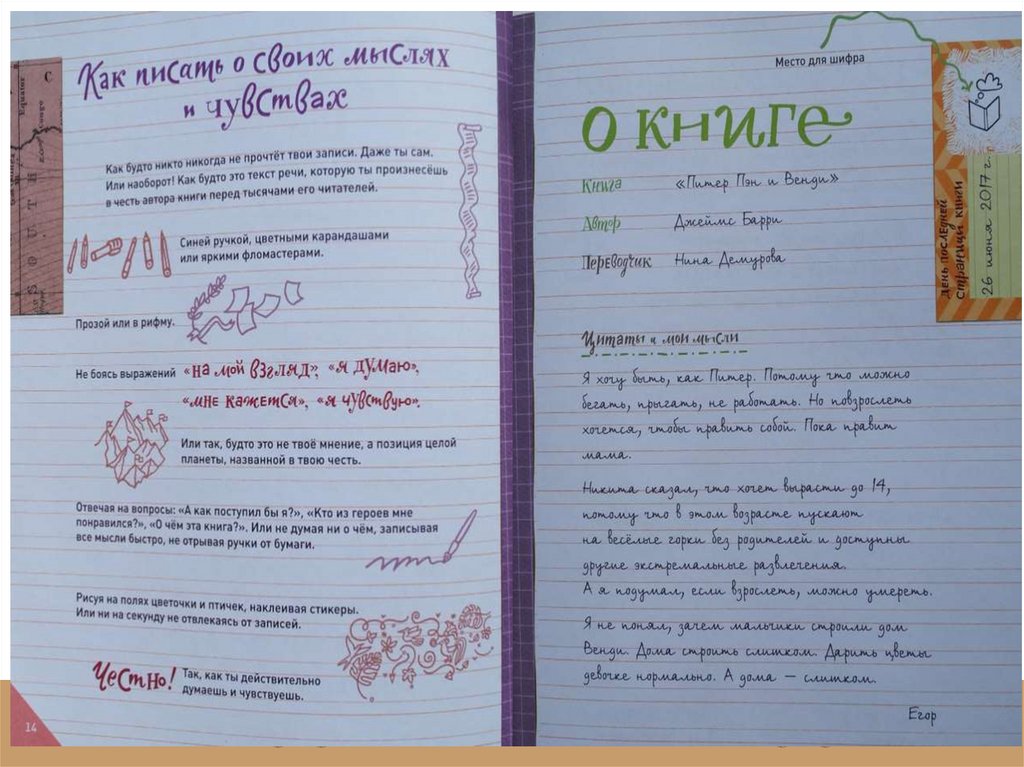 C
Equator
SOUTH
Как писать о своих мыслях
и чувствах
Как будто никто никогда не прочтёт твои записи. Даже ты сам.
Или наоборот! Как будто это текст речи, которую ты произнесёшь
в честь автора книги перед тысячами его читателей.
Синей ручкой, цветными карандашами
или яркими фломастерами.
Прозой или в рифму.
Не боясь выражений «на мой взгляд», «я думаю»,
«мне кажется», «я чувствую».
Или так, будто это не твоё мнение, а позиция целой
планеты, названной в твою честь.
Отвечая на вопросы: «А как поступил бы я?», «Кто из героев мне
понравился?», «О чём эта книга?». Или не думая ни о чём, записывая
все мысли быстро, не отрывая ручки от бумаги.
Рисуя на полях цветочки и птичек, наклеивая стикеры.
Или ни на секунду не отвлекаясь от записей.
Честно! Так, как ты действительно
думаешь и чувствуешь.
14
Место для шифра
О книге
Книга «Питер Пэн и Венди»
Автор Джеймс Барри
Переводчик Нина Демурова
День последней
страницы книги
26 июня 2017 г.
Цитаты и мои мысли
Я хочу быть, как Питер. Потому что можно
бегать, прыгать, не работать. Но повзрослеть
хочется, чтобы править собой. Пока правит
мама.
Никита сказал, что хочет вырасти до 14,
потому что в этом возрасте пускают
на весёлые горки без родителей и доступны
другие экстремальные развлечения.
А я подумал, если взрослеть, можно умереть.
Я не понял, зачем мальчики строили дом
Венди. Дома строить слишком. Дарить цветы
девочке нормально. А дома — слишком.
Егор